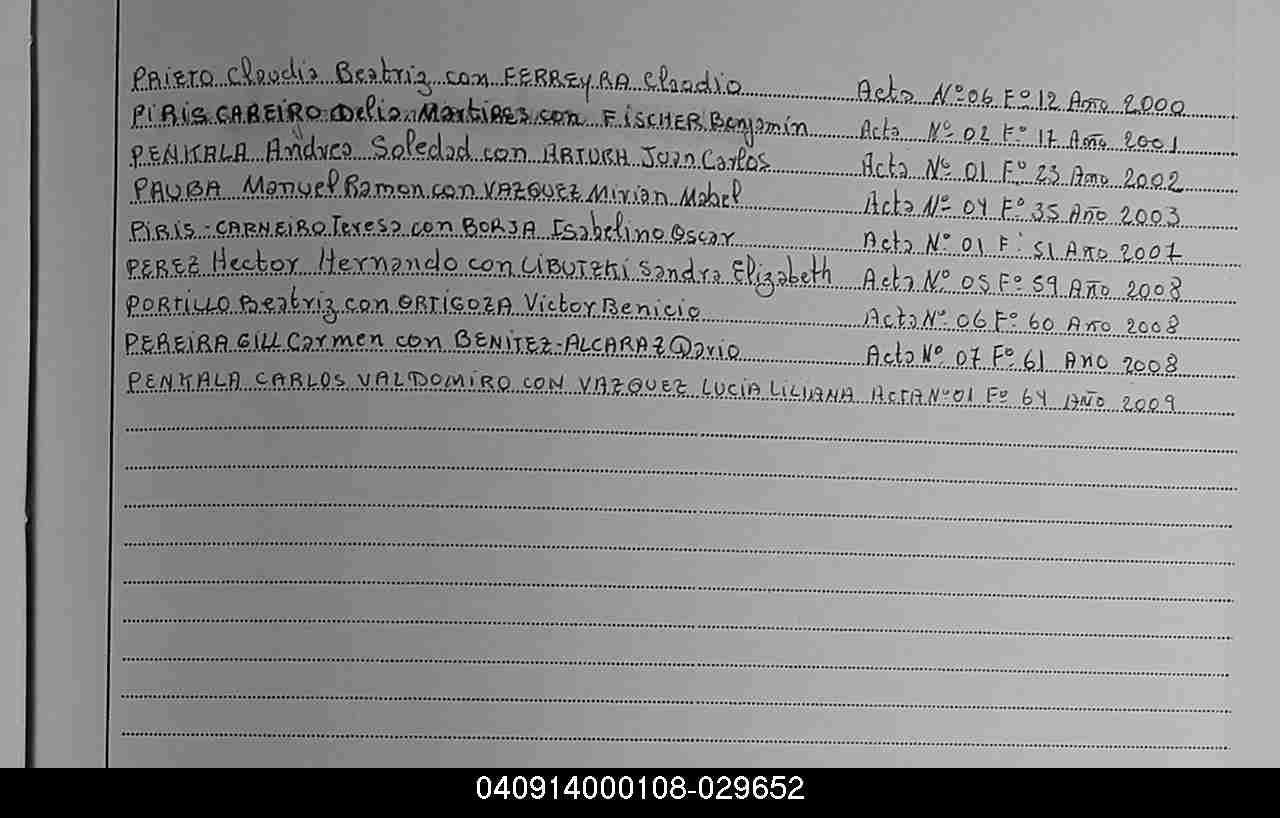 PRIETO Claudia Beatriz con FERREYRA Claudio Acta Nº 06 Fº 12 Año 2000
PIRIS CAREIRO Delia Martires con FISCHER Benjamín Acta Nº 02 Fº 17 Año 2001
PENKALA Andrea Soledad con ARTURA Juan Carlos Acta Nº 01 Fº 23 Año 2002
PAUBA Manuel Ramon con VAZQUEZ Mirian Mabel Acta Nº 04 Fº 35 Año 2003
PIRIS-CARNEIRO Teresa con BORJA Isabelino Oscar Acta Nº 01 Fº 51 Año 2007
PEREZ Hector Hernando con LIBUTZKI Sandra Elizabeth Acta Nº 05 Fº 59 Año 2008
PORTILLO Beatriz con ORTIGOZA Victor Benicio Acta Nº 06 Fº 60 Año 2008
PEREIRA GILL Carmen con BENITEZ-ALCARAZ Dario Acta Nº 07 Fº 61 Año 2008
PENKALA CARLOS VALDOMIRO CON VAZQUEZ LUCIA LILIANA ACTA Nº 01 Fº 64 AÑO 2009
040914000108-029652